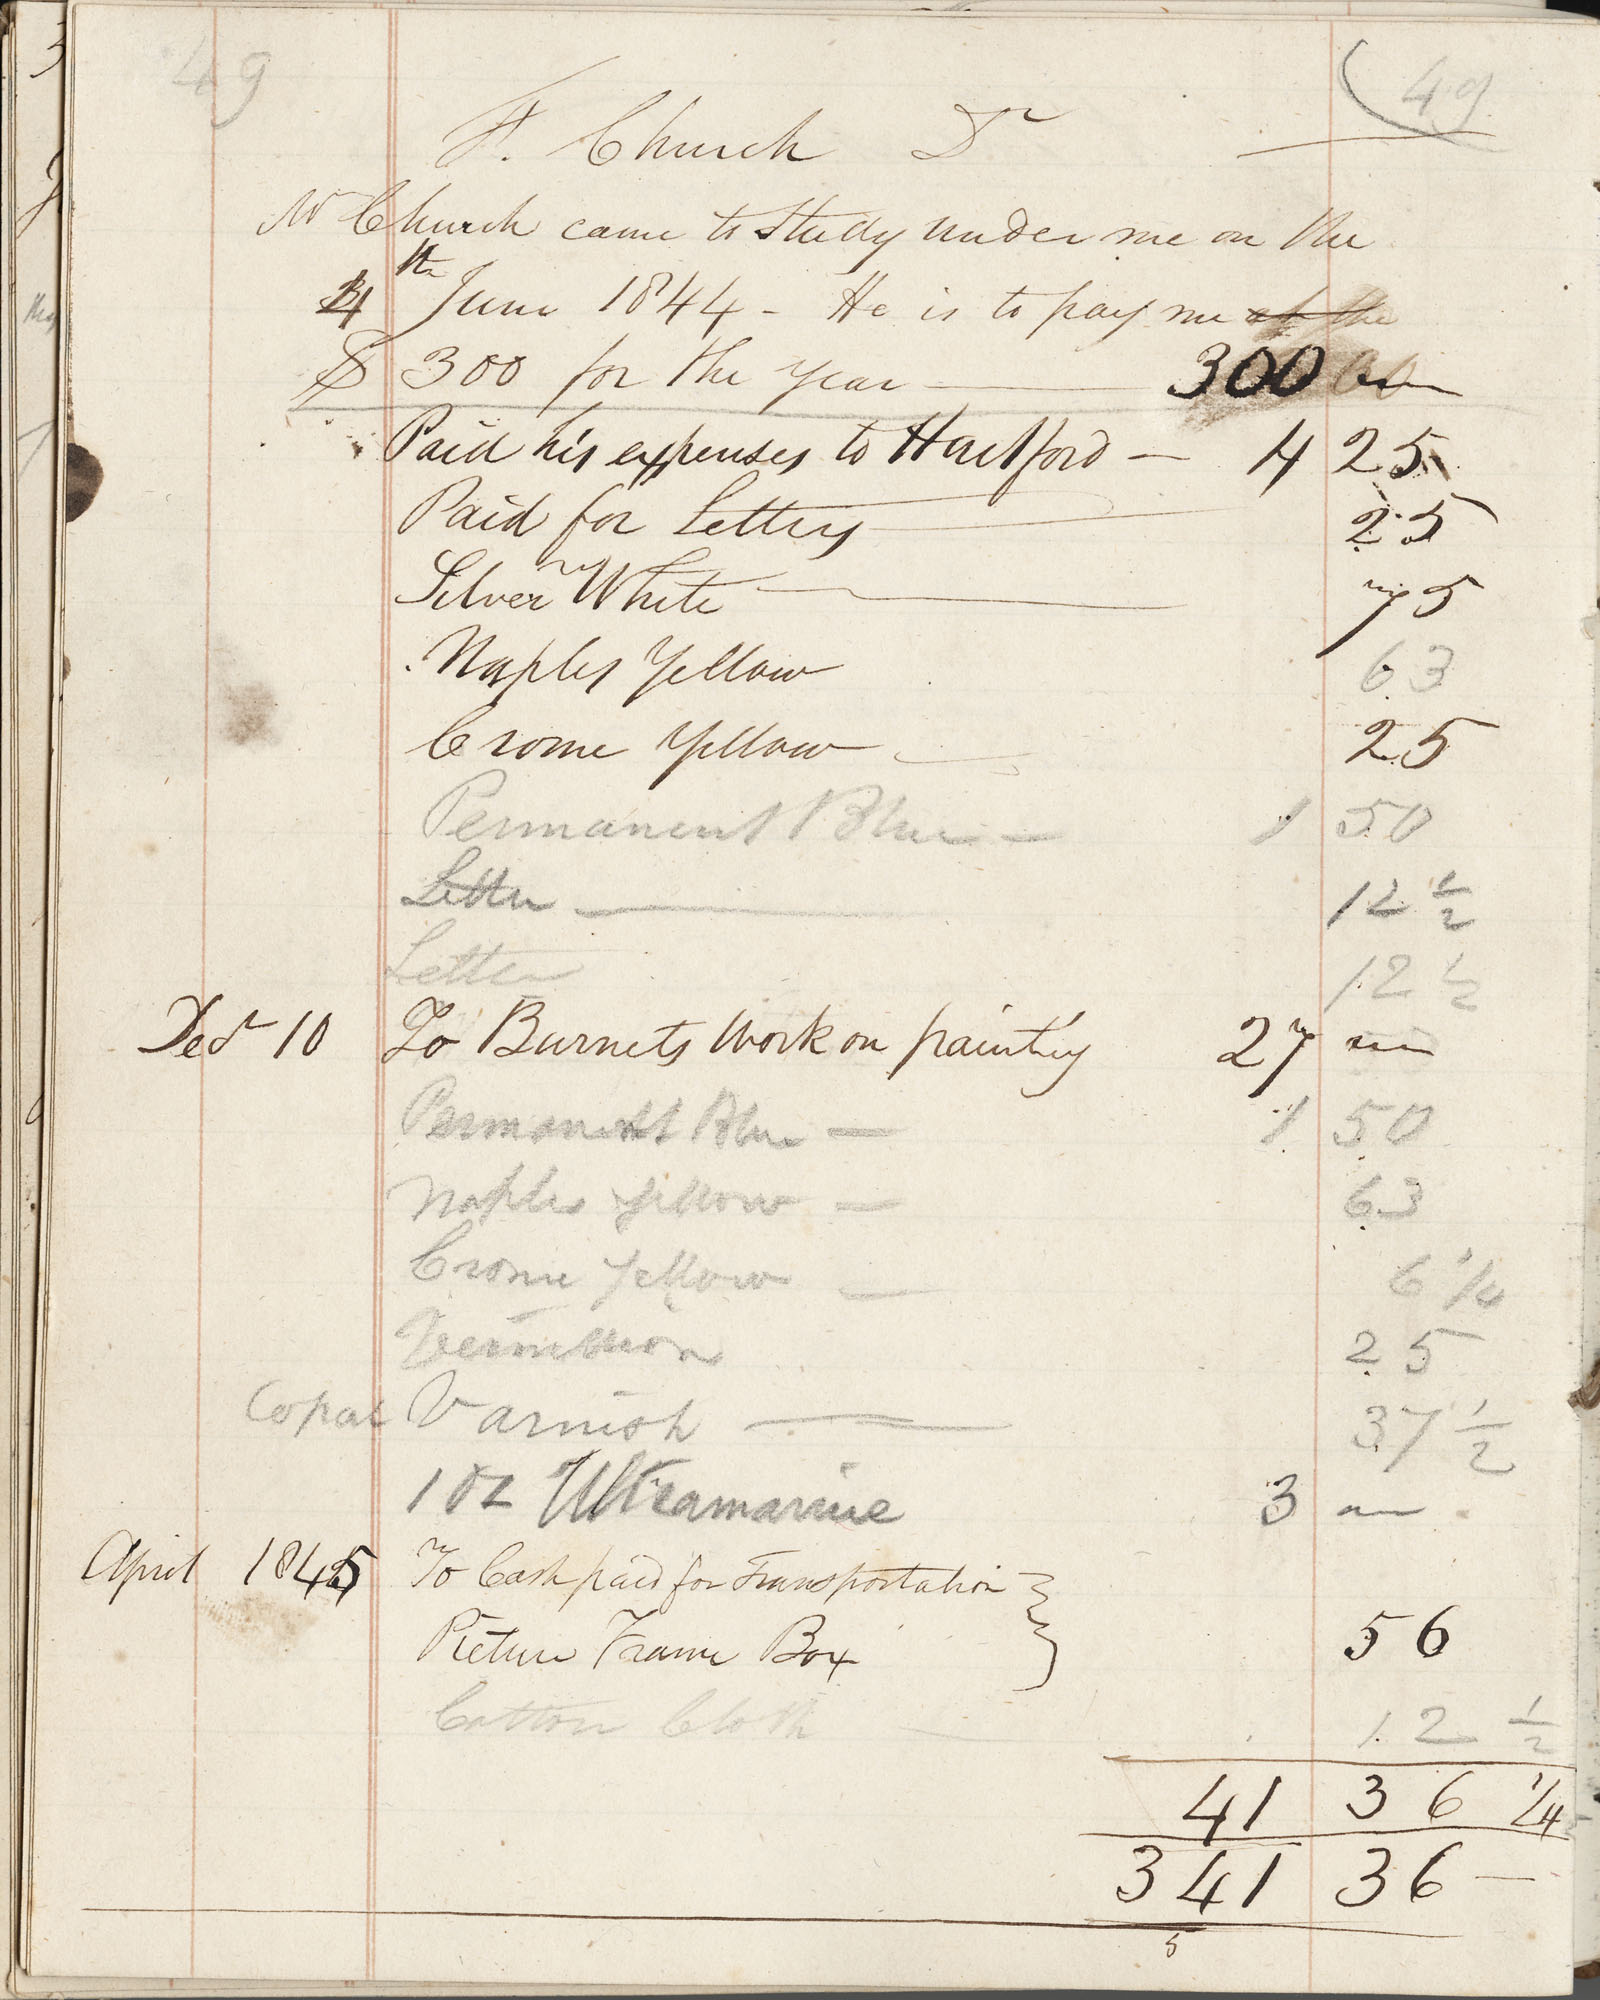 49
49
F. Church Dr
Mr Church came to Study under me on the
4th June 1844 - He is to pay me at the
$ 300 for the year — 300
Paid his expenses to Hartford — 4 25
Paid for Letters 25
Silver White 75
Naples Yellow 63
Crome Yellow 25
Permanent Blue — 1 50
Letter — 12 1/2
Letter 12 1/2
Decr 10 To Burnets Work on painting 27
Permanent Blue — 1 50
Naples Yellow — 63
Crome Yellow — 6 1/4
Vermillion 25
Copal Varnish — 37 1/2
1 oz Ultramarine 3
April 1845 To Cash paid for Transportation
Picture Frame Box 56
Cotton Cloth 12 1/2
41 36 1/4
341 36 —
5